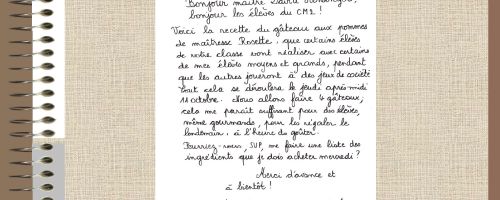 Bonjour maître David
bonjour les élèves du CM2 !
Voici la recette du gâteau aux pommes
de maîtresse Rosette, que certains élèves
de notre classe vont réaliser avec certains
de mes élèves moyens et grands, pendant
que les autres joueront à des jeux de société
tout cela se déroulera le jeudi après-midi
18 octobre. Nous allons faire 4 gâteaux;
cela me paraît suffisant pour des élèves,
même gourmands, pour les régaler le
lendemain, à l'heure du goûter.
Pourriez-vous, SVP, me faire une liste des
ingrédients que je dois acheter mercredi ?
Merci d'avance et
à bientôt !